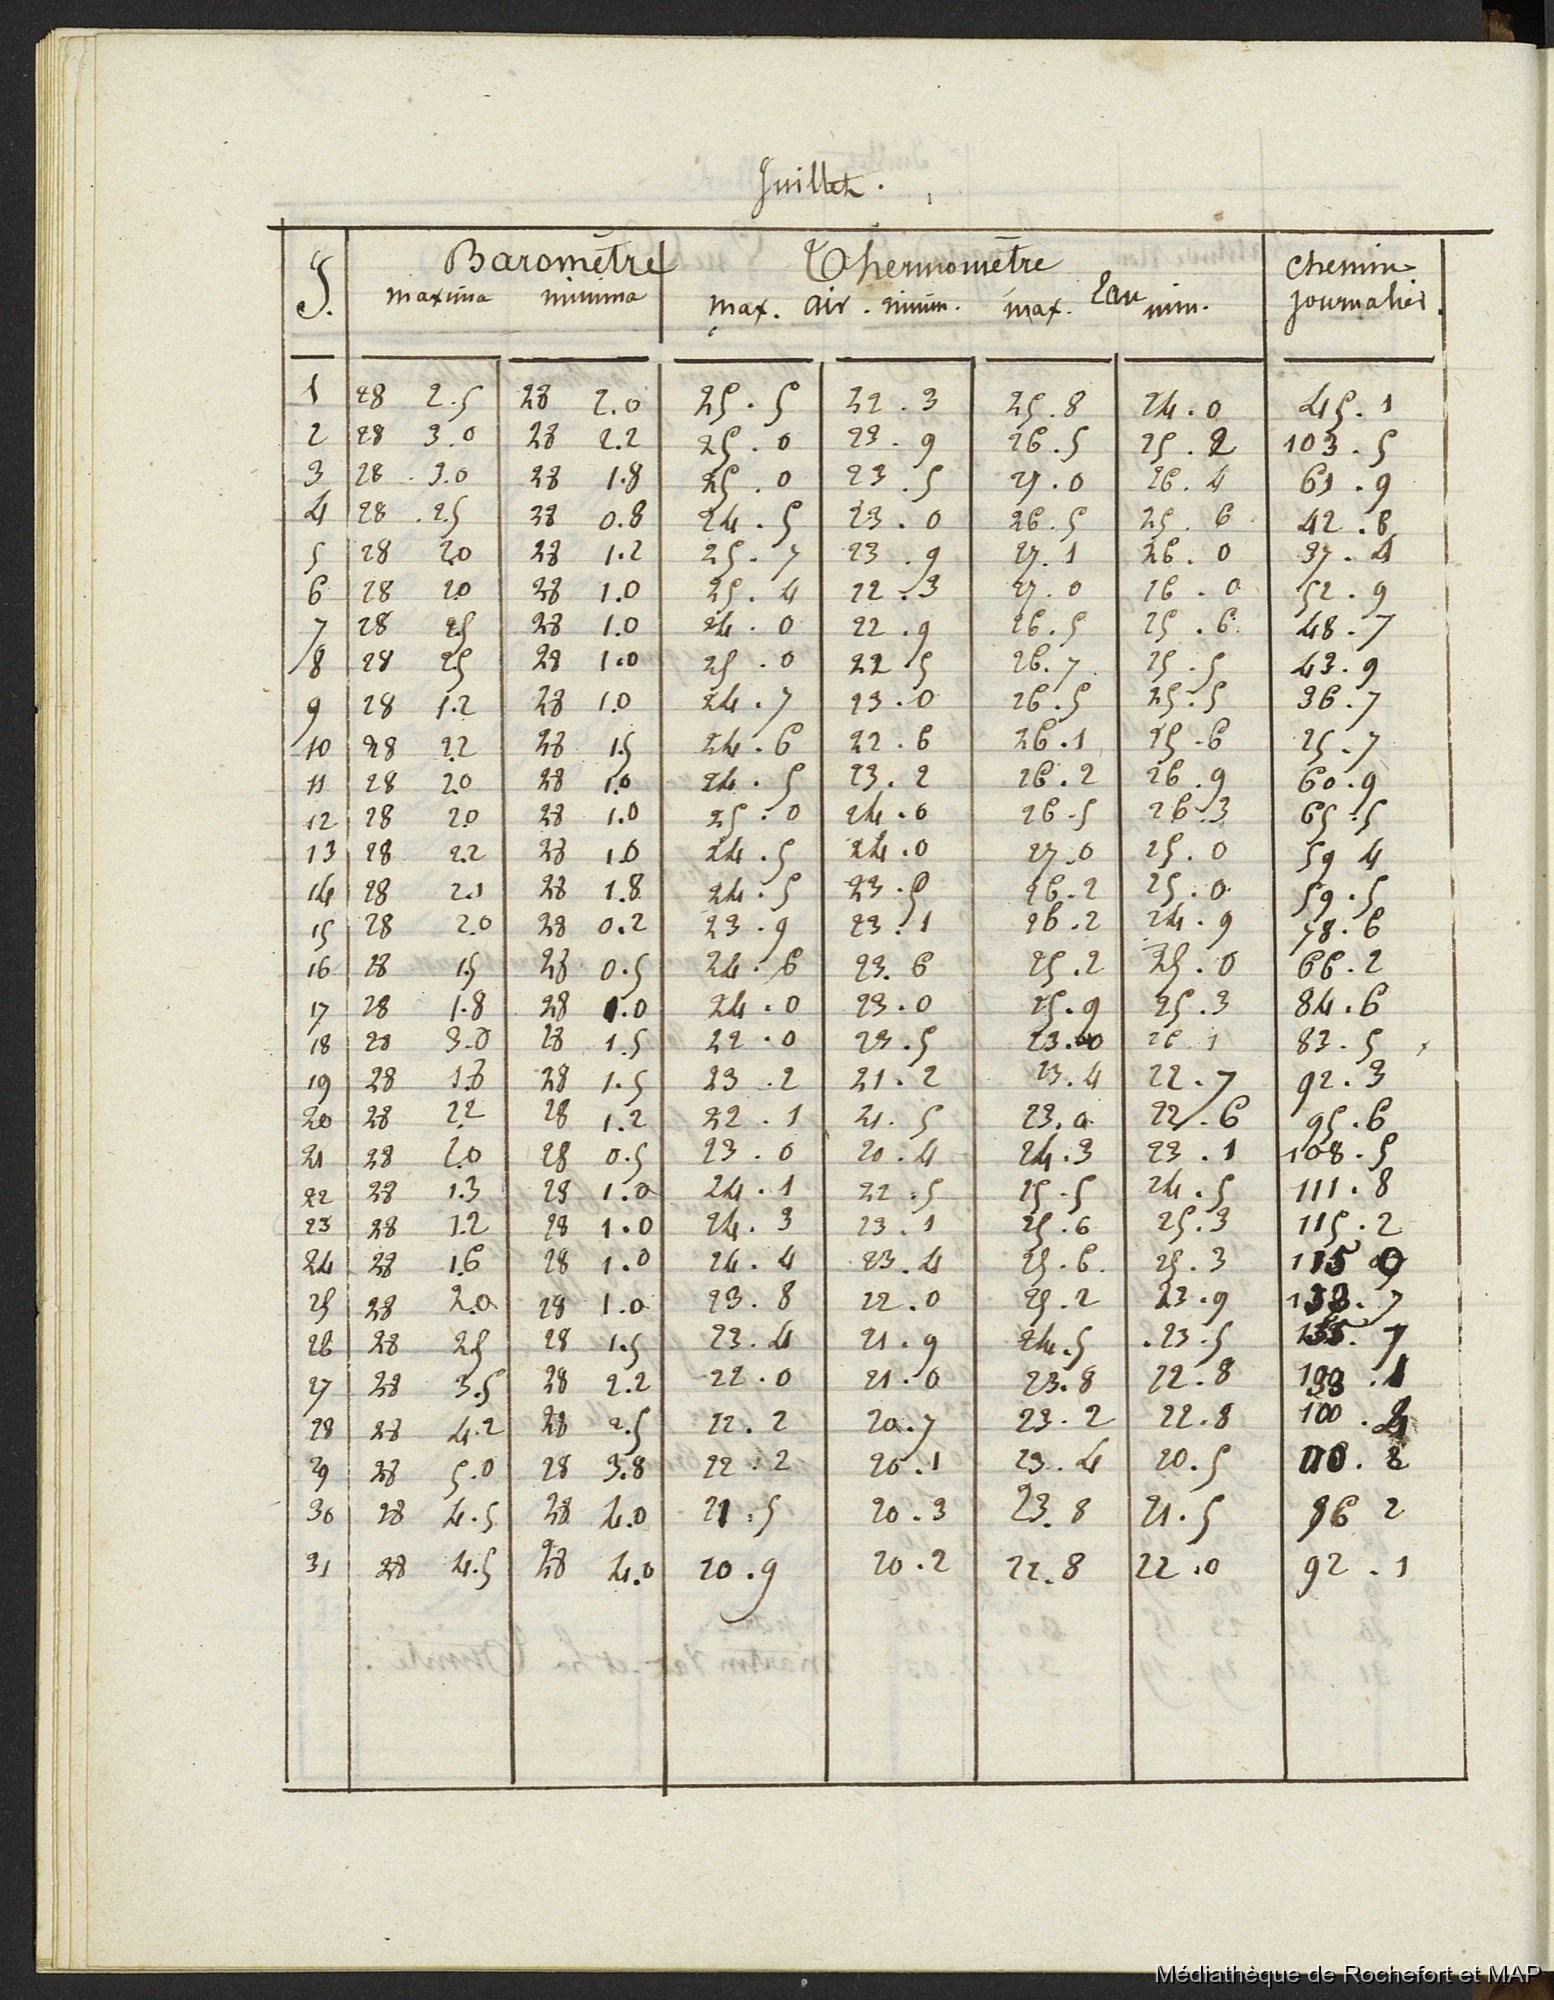 Juillet.
J. Baromètre Thermomètre chemin
maxima minima max. air. minim. max. Eau min. journalier.
1 28 2.5 28 2.0 25.5 22.3 25.8 24.0 45.1
2 28 3.0 28 2.2 25.0 23.9 26.5 25.2 103.5
3 28 3.0 28 1.8 25.0 23.5 27.0 26.4 61.9
4 28 2.5 28 0.8 24.5 23.0 26.5 25.6 42.8
5 28 2.0 28 1.2 25.7 23.9 27.1 26.0 37.4
6 28 2.0 28 1.0 25.4 22.3 27.0 26.0 52.9
7 28 2.5 28 1.0 24.0 22.9 26.5 25.6 48.7
8 28 2.5 28 1.0 25.0 22.5 26.7 25.5 43.9
9 28 1.2 28 1.0 24.7 23.0 26.5 25.5 36.7
10 28 2.2 28 1.5 24.6 22.6 26.1 25.6 25.7
11 28 2.0 28 1.0 24.5 23.2 26.2 26.9 60.9
12 28 2.0 28 1.0 25.0 24.0 26.5 26.3 65.5
13 28 2.2 28 1.0 24.5 24.0 27.0 25.0 59 4
14 28 2.1 28 1.8 24.5 23.5 26.2 25.0 59.5
15 28 2.0 28 0.2 23.9 23.1 26.2 24.9 78.6
16 28 1.5 28 0.5 24.6 23.6 25.2 25.0 66.2
17 28 1.8 28 1.0 24.0 23.0 25.9 25.3 84.6
18 28 3.0 28 1.5 22.0 23.5 23.0 26 1 83.5
19 28 1.8 28 1.5 23.2 21.2 23.4 22.7 92.3
20 28 2.2 28 1.2 22.1 21.5 23.0 22.6 95.6
21 28 2.0 28 0.5 23.0 20.4 24.3 23.1 108.5
22 28 1.3 28 1.0 24.1 22.5 25.5 24.5 111.8
23 28 1.2 28 1.0 24.3 23.1 25.6 25.3 115.2
24 28 1.6 28 1.0 24.4 23.4 25.6 25.3 115 0
25 28 2.0 28 1.0 23.8 22.0 25.2 23.9 133.7
26 28 2.5 28 1.5 23.4 21.9 24.5 23.5 135.7
27 28 3.5 28 2.2 22.0 21.0 23.8 22.8
28 28 4.2 28 2.5 22.2 20.7 23.2 22.8 100.
29 28 5.0 28 3.8 22.2 20.1 23.4 20.5 110.2
30 28 4.5 28 4.0 21.5 20.3 23.8 21.5 96 2
31 28 4.5 28 4.0 20.9 20.2 22.8 22.0 92.1
Médiathèque de Rochefort et MAP